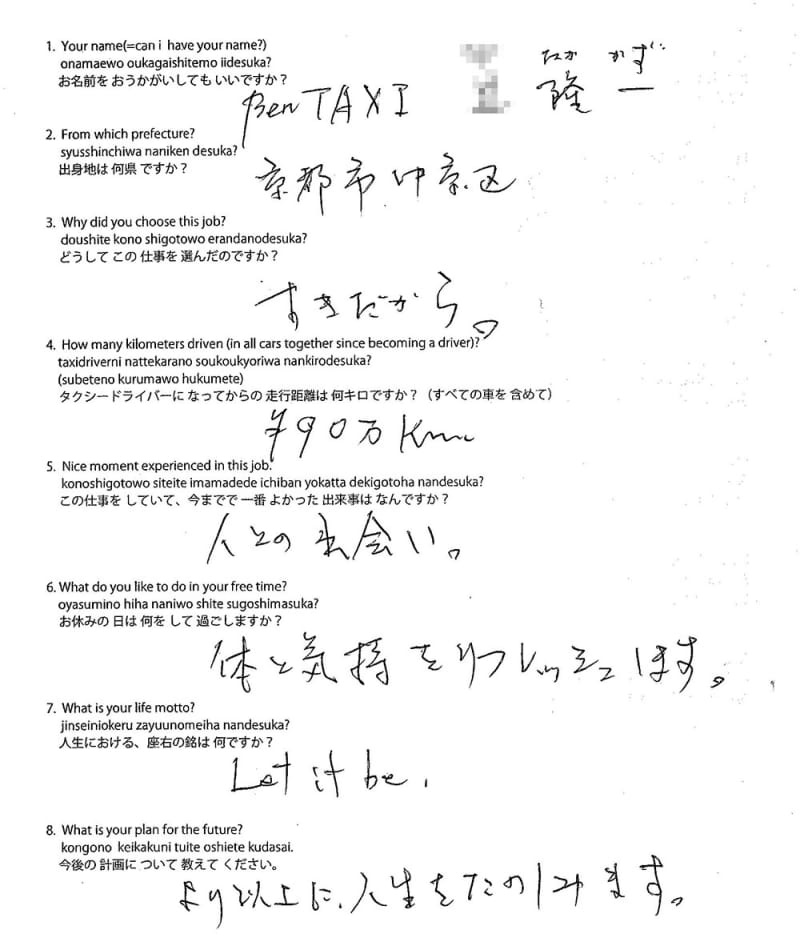 1. Your name(=can i have your name?)
onamaewo oukagaishitemo iidesuka?
お名前を おうかがいしても いいですか？
Ben TAXI 隆一
たか かず
2. From which prefecture?
syusshinchiwa naniken desuka?
出身地は 何県 ですか？
京都市中京区
3. Why did you choose this job?
doushite kono shigotowo erandanodesuka?
どうして この 仕事を 選んだのですか？
すきだから。
4. How many kilometers driven (in all cars together since becoming a driver)?
taxidriverni nattekarano soukoukyoriwa nankirodesuka?
(subeteno kurumawo hukumete)
タクシードライバーに なってからの 走行距離は 何キロですか？（すべての車を 含めて）
90万Km
5. Nice moment experienced in this job.
konoshigotowo siteite imamadede ichiban yokatta dekigotoha nandesuka?
この仕事を していて、今までで 一番 よかった 出来事は なんですか？
人との出会い。
6. What do you like to do in your free time?
oyasumino hiha naniwo shite sugoshimasuka?
お休みの 日は 何を して 過ごしますか？
体と気持をリフレッシュします。
7. What is your life motto?
jinseiniokeru zayuunomeiha nandesuka?
人生における、座右の銘は 何ですか？
Let it be.
8. What is your plan for the future?
kongono keikakuni tuite oshiete kudasai.
今後の 計画に ついて 教えて ください。
より以上に、人生をたのしみます。